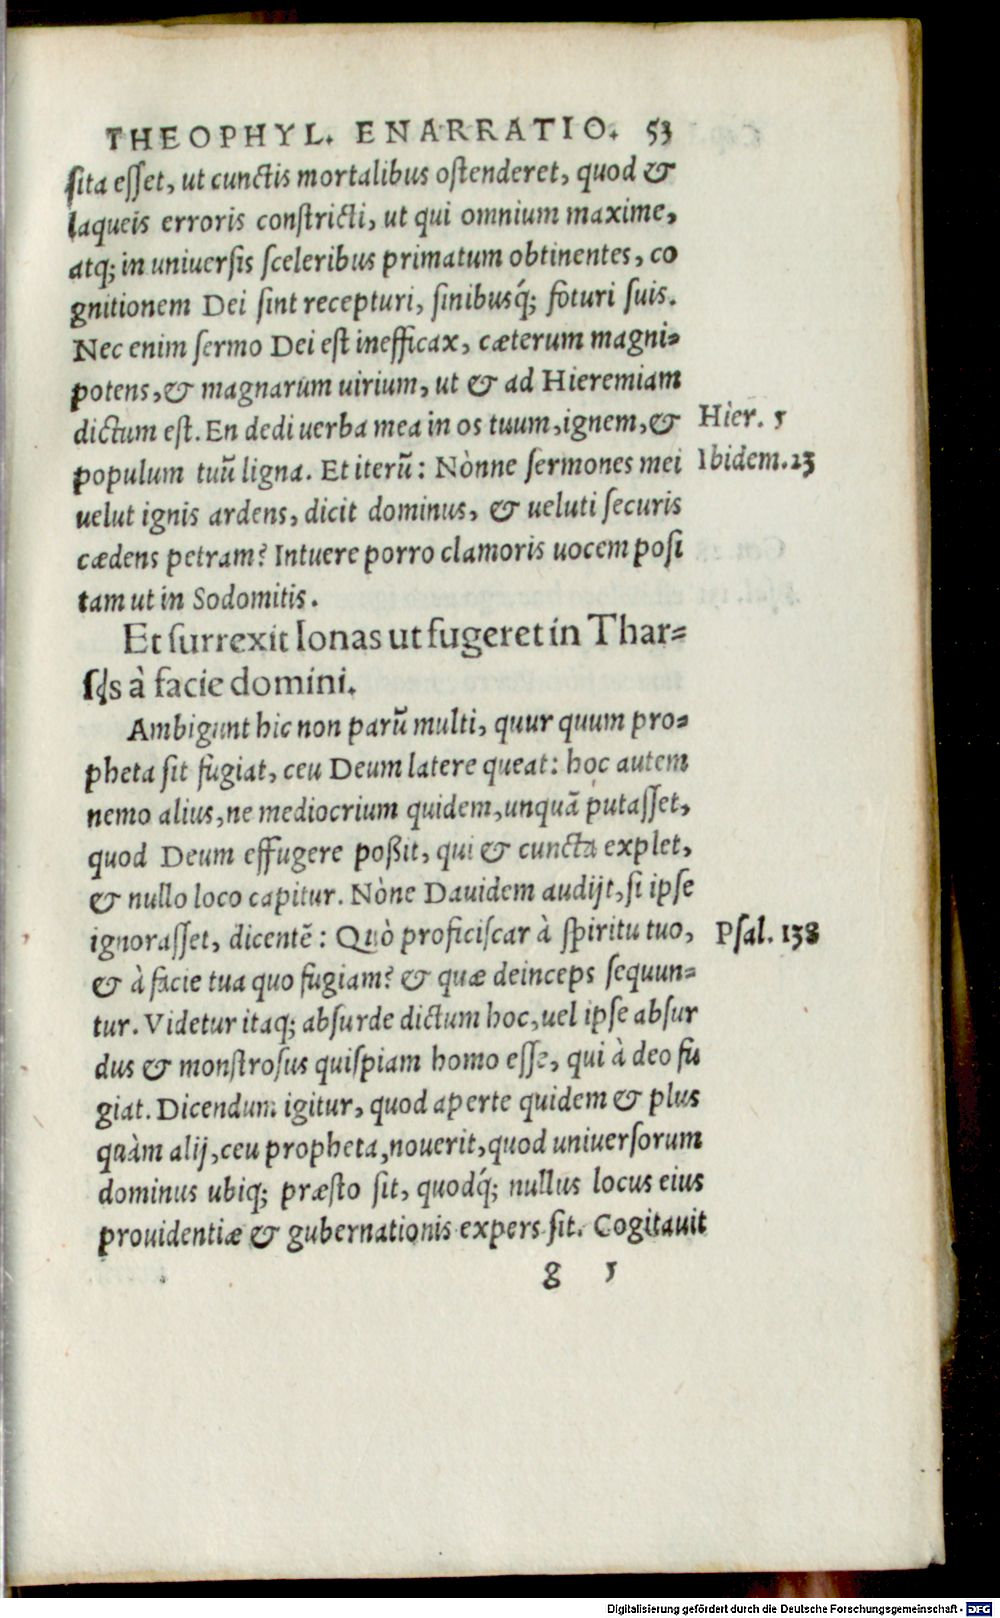 THEOPHYL. ENARRATIO. 53
ſita eſſet, ut cunctis mortalibus oſtenderet, quod &
laqueis erroris conſtricti, ut qui omnium maxime,
atq; in uniuerſis ſceleribus primatum obtinentes, co
gnitionem Dei ſint recepturi, ſinibusq́; foturi ſuis.
Nec enim ſermo Dei eſt inefficax, cæterum magni-
potens, & magnarum uirium, ut & ad Hieremiam
dictum eſt. En dedi uerba mea in os tuum, ignem, &
Hier. 5
populum tuũ ligna. Et iterũ: Nònne ſermones mei
Ibidem. 23
uelut ignis ardens, dicit dominus, & ueluti ſecuris
cædens petram? Intuere porro clamoris uocem poſi
tam ut in Sodomitis.
Et ſurrexit Ionas ut fugeret in Thar-
ſis à facie domini.
Ambigunt hic non parũ multi, quur quum pro-
pheta ſit fugiat, ceu Deum latere queat: hoc autem
nemo alius, ne mediocrium quidem, unquã putaſſet,
quod Deum effugere poßit, qui & cuncta explet,
& nullo loco capitur. Nòne Dauidem audijt, ſi ipſe
ignoraſſet, dicentẽ: Quò proficiſcar à ſpiritu tuo,
Pſal. 138
& à facie tua quo fugiam? & quæ deinceps ſequun-
tur. Videtur itaq; abſurde dictum hoc, uel ipſe abſur
dus & monſtroſus quiſpiam homo eſſe, qui à deo fu
giat. Dicendum igitur, quod aperte quidem & plus
quàm alij, ceu propheta, nouerit, quod uniuerſorum
dominus ubiq; præſto ſit, quodq́; nullus locus eius
prouidentiæ & gubernationis expers ſit. Cogitauit
g 5
Digitalisierung gefördert durch die Deutsche Forschungsgemeinschaft - DFG